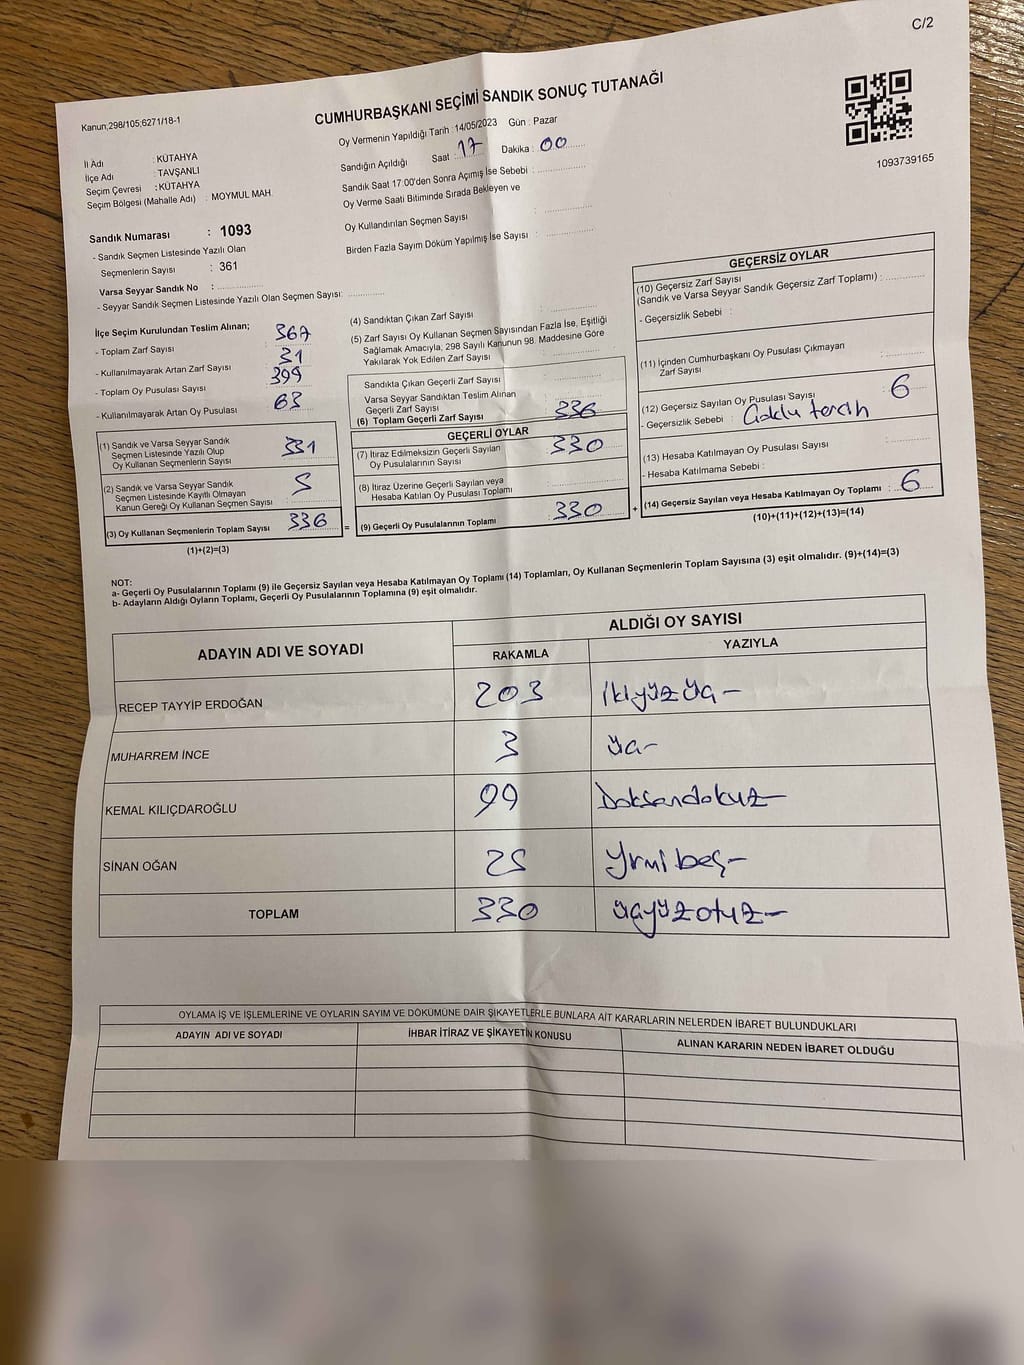 C/2
Kanun,298/105;6271/18-1
CUMHURBAŞKANI SEÇİMİ SANDIK SONUÇ TUTANAĞI
Oy Vermenin Yapıldığı Tarih : 14/05/2023 Gün : Pazar
1093739165
İl Adı : KÜTAHYA
İlçe Adı : TAVŞANLI
Seçim Çevresi : KÜTAHYA
Seçim Bölgesi (Mahalle Adı) : MOYMUL MAH.
Sandığın Açıldığı Saat : 17 Dakika : 00
Sandık Saat 17:00'den Sonra Açımış İse Sebebi :
Oy Verme Saati Bitiminde Sırada Bekleyen ve
Oy Kullandırılan Seçmen Sayısı :
Birden Fazla Sayım Döküm Yapılmış İse Sayısı :
Sandık Numarası : 1093
- Sandık Seçmen Listesinde Yazılı Olan
Seçmenlerin Sayısı : 361
Varsa Seyyar Sandık No :
- Seyyar Sandık Seçmen Listesinde Yazılı Olan Seçmen Sayısı:
İlçe Seçim Kurulundan Teslim Alınan;
- Toplam Zarf Sayısı
- Kullanılmayarak Artan Zarf Sayısı 31
- Toplam Oy Pusulası Sayısı 399
- Kullanılmayarak Artan Oy Pusulası 63
(1) Sandık ve Varsa Seyyar Sandık
Seçmen Listesinde Yazılı Olup
Oy Kullanan Seçmenlerin Sayısı 331
(2) Sandık ve Varsa Seyyar Sandık
Seçmen Listesinde Kayıtlı Olmayan
Kanun Gereği Oy Kullanan Seçmen Sayısı 5
(3) Oy Kullanan Seçmenlerin Toplam Sayısı 336 =
(1)+(2)=(3)
(4) Sandıktan Çıkan Zarf Sayısı :
(5) Zarf Sayısı Oy Kullanan Seçmen Sayısından Fazla İse, Eşitliği
Sağlamak Amacıyla, 298 Sayılı Kanunun 98. Maddesine Göre
Yakılarak Yok Edilen Zarf Sayısı
Sandıkta Çıkan Geçerli Zarf Sayısı :
Varsa Seyyar Sandıktan Teslim Alınan
Geçerli Zarf Sayısı
(6) Toplam Geçerli Zarf Sayısı 336
GEÇERLİ OYLAR
(7) İtiraz Edilmeksizin Geçerli Sayılan
Oy Pusulalarının Sayısı 330
(8) İtiraz Üzerine Geçerli Sayılan veya
Hesaba Katılan Oy Pusulası Toplamı
(9) Geçerli Oy Pusulalarının Toplamı 330 +
GEÇERSİZ OYLAR
(10) Geçersiz Zarf Sayısı
(Sandık ve Varsa Seyyar Sandık Geçersiz Zarf Toplamı) :
- Geçersizlik Sebebi :
(11) İçinden Cumhurbaşkanı Oy Pusulası Çıkmayan
Zarf Sayısı :
(12) Geçersiz Sayılan Oy Pusulası Sayısı 6
- Geçersizlik Sebebi : Çoklu tercih
(13) Hesaba Katılmayan Oy Pusulası Sayısı :
- Hesaba Katılmama Sebebi :
(14) Geçersiz Sayılan veya Hesaba Katılmayan Oy Toplamı : 6
(10)+(11)+(12)+(13)=(14)
NOT:
a- Geçerli Oy Pusulalarının Toplamı (9) ile Geçersiz Sayılan veya Hesaba Katılmayan Oy Toplamı (14) Toplamları, Oy Kullanan Seçmenlerin Toplam Sayısına (3) eşit olmalıdır. (9)+(14)=(3)
b- Adayların Aldığı Oyların Toplamı, Geçerli Oy Pusulalarının Toplamına (9) eşit olmalıdır.
ADAYIN ADI VE SOYADI ALDIĞI OY SAYISI
RAKAMLA YAZIYLA
RECEP TAYYİP ERDOĞAN 203 ikiyüzüç -
MUHARREM İNCE 3 üç -
KEMAL KILIÇDAROĞLU 99 Doksandokuz -
SİNAN OĞAN 25 Yirmibeş -
TOPLAM 330 üçyüzotuz -
OYLAMA İŞ VE İŞLEMLERİNE VE OYLARIN SAYIM VE DÖKÜMÜNE DAİR ŞİKAYETLERLE BUNLARA AİT KARARLARIN NELERDEN İBARET BULUNDUKLARI
ADAYIN ADI VE SOYADI İHBAR İTİRAZ VE ŞİKAYETİN KONUSU ALINAN KARARIN NEDEN İBARET OLDUĞU